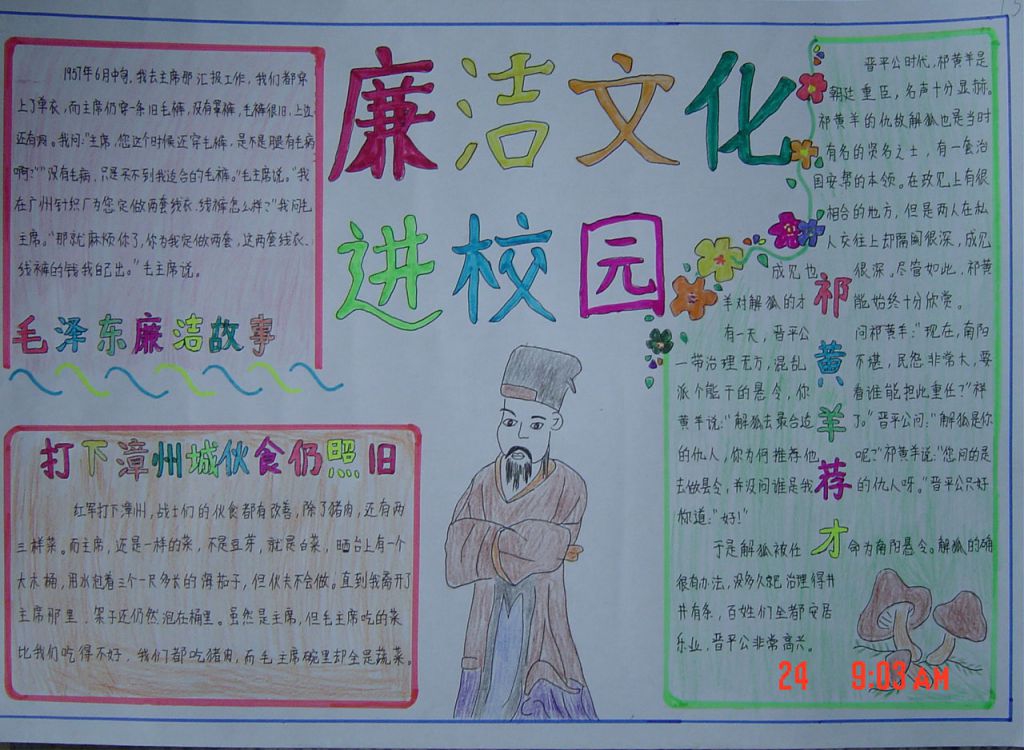 廉洁文化
进校园
1957年6月中旬,我去主席那汇报工作,我们都穿
上了单衣,而主席仍穿一条旧毛裤,没有罩裤,毛裤很旧,上边
还有洞。我问:"主席,您这个时候还穿毛裤,是不是腿有毛病
啊?""没有毛病,只是买不到我适合的毛裤。"毛主席说。"我
在广州针织厂为您定做两套线衣、线裤怎么样?"我问毛
主席。"那就麻烦你了,你为我定做两套,这两套线衣、
线裤的钱我自己出。"毛主席说。
毛泽东廉洁故事
打下漳州城伙食仍照旧
红军打下漳州,战士们的伙食都有改善,除了猪肉,还有两
三样菜。而主席,还是一样的菜,不是豆芽,就是白菜,晒台上有一个
大木桶,用水泡着三个一尺多长的海茄子,但伙夫不会做。直到我离开了
主席那里,茄子还仍然泡在桶里。虽然是主席,但毛主席吃的菜
比我们吃得不好,我们都吃猪肉,而毛主席碗里却全是蔬菜。
祁黄羊荐才
晋平公时代,祁黄羊是
朝廷重臣,名声十分显赫。
祁黄羊的仇敌解狐也是当时
有名的贤名之士,有一套治
国安帮的本领。在政见上有很
相合的地方,但是两人在私
人交往上却隔阂很深,成见
成见也很深。尽管如此,祁黄
羊对解狐的才能始终十分欣赏。
有一天,晋平公问祁黄羊:"现在,南阳
一带治理无方,混乱不堪,民怨非常大,要
派个能干的县令,你看谁能担此重任?"祁
黄羊说:"解狐去最合适了。"晋平公问:"解狐是你
的仇人,你为何推荐他呢?"祁黄羊说:"您问的是
去做县令,并没问谁是我的仇人呀。"晋平公只好
称道:"好!"
于是解狐被任命为南阳县令。解狐的确
很有办法,没多久把治理得井
井有条,百姓们全都安居
乐业,晋平公非常高兴。
24 9:03 AM